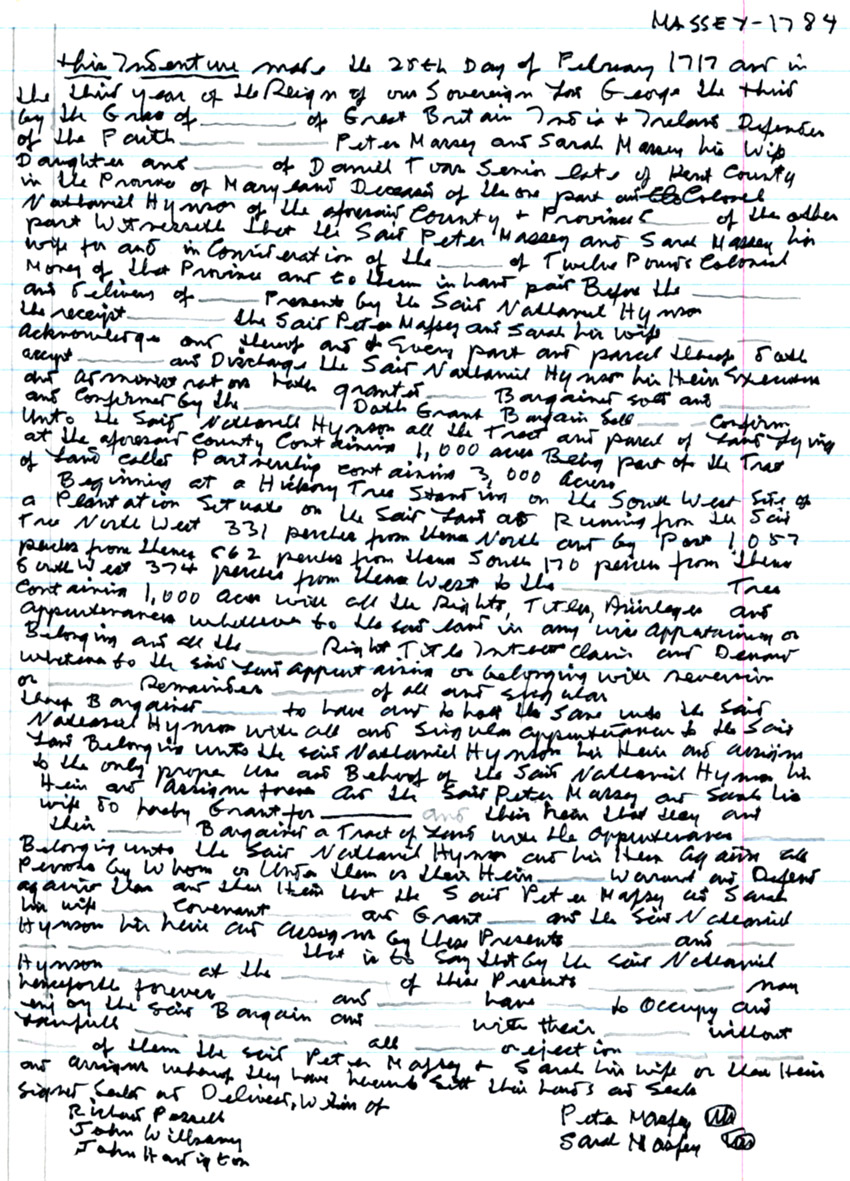 MASSEY-1784
this Indenture made the 28th Day of February 1717 and in
the third year of the Reign of our Sovereign Lord George the third
by the Grace of ______ of Great Britain India + Ireland Defender
of the Faith ______ ______ Peter Massey and Sarah Massey his Wife
Daughter and ______ of Daniell Toas Senior late of Kent County
in the Province of Maryland Deceased of the one part and Colonel
Nathaniel Hynson of the aforesaid County + Province ______ of the other
part Witnesseth that the Said Peter Massey and Sarah Massey his
wife for and in Consideration of the ______ of Twelve Pounds Colonial
Money of that Province and to them in hand paid Before the ______
and delivery of ______ Presents by the Said Nathaniel Hynson
the receipt ______ the Said Peter Massey and Sarah his wife ______ ______
Acknowledge and thereof and of Every part and parcel thereof doth
accept ______ and Discharge the Said Nathaniel Hynson his Heirs Executors
and Administrators hath granted ______ Bargained sold and ______
and Confirmed by the ______ Doth Grant Bargain Sell ______ Confirm
Unto the Said Nathaniell Hynson all the Tract and parcel of Land lying
at the aforesaid County Containing 1,000 acres Being part of the Tract
of Land called Partnership containing 3,000 Acres
Beginning at a Hickory Tree Standing on the South West Side of
a Plantation Situate on the Said Land and Running from the Said
Tree North West 331 perches from thence North and by East 1,087
perches from thence 662 perches from thence South 170 perches from thence
South West 374 perches from thence West to the ______ Tree
Containing 1,000 Acres with all the Rights, Titles, Privileges and
Appurtenances whatsoever to the said land in any wise Appertaining or
Belonging and all the ______ Right Title Interest Claim and Demand
whatsoever to the said Land appertaining or belonging with reversion
or ______ Remainder ______ of all and singular
these Bargained ______ to have and to hold the Same unto the Said
Nathaniel Hynson with all and Singular appurtenances to the Said
Land Belonging unto the said Nathaniel Hynson his Heirs and assigns
to the only proper Use and Behoof of the Said Nathaniel Hynson his
Heirs and Assigns forever And the Said Peter Massey and Sarah his
wife do hereby Grant for ______ and their heirs that they and
their ______ Bargained a Tract of Land with the Appurtenances ______
Belonging unto the Said Nathaniel Hynson and his Heirs Against all
Persons by Whom or Under them or their Heirs ______ Warrant and Defend
against them and their Heirs that the Said Peter Massey and Sarah
his wife ______ Covenant ______ and Grant ______ and the Said Nathaniel
Hynson his heirs and assigns by these Presents ______ and ______
______ ______ that is to Say that by the said Nathaniel
Hynson ______ at the ______ of these Presents ______ may
henceforth forever ______ and ______ have ______ to Occupy and
enjoy the Said Bargain and ______ with their ______ without
lawfull ______ ______ all ______ or ejection ______ ______
______ of them the said Peter Massey + Sarah his wife or their Heirs
and assigns whereof they have hereunto Sett their hands and Seals
Signed Sealed and Delivered, Within of
Richard Passell
John Willsamy
John Harrington
Peter Massey
Sarah Massey